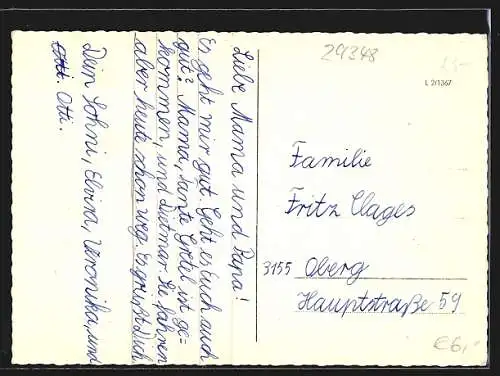 Liebe Mama und Papa!
Es geht mir gut. Geht es Euch auch
gut? Mama, Tante Gretel ist ge-
kommen, und Dietmar. Sie fahren
aber heute schon weg. Es grüßt Dich
Dein Sohni, Elvira, Veronika, und
Otti.
29348
L 2/1367
Familie
Fritz Clages
3155 Oberg
Hauptstraße 59
€6,-